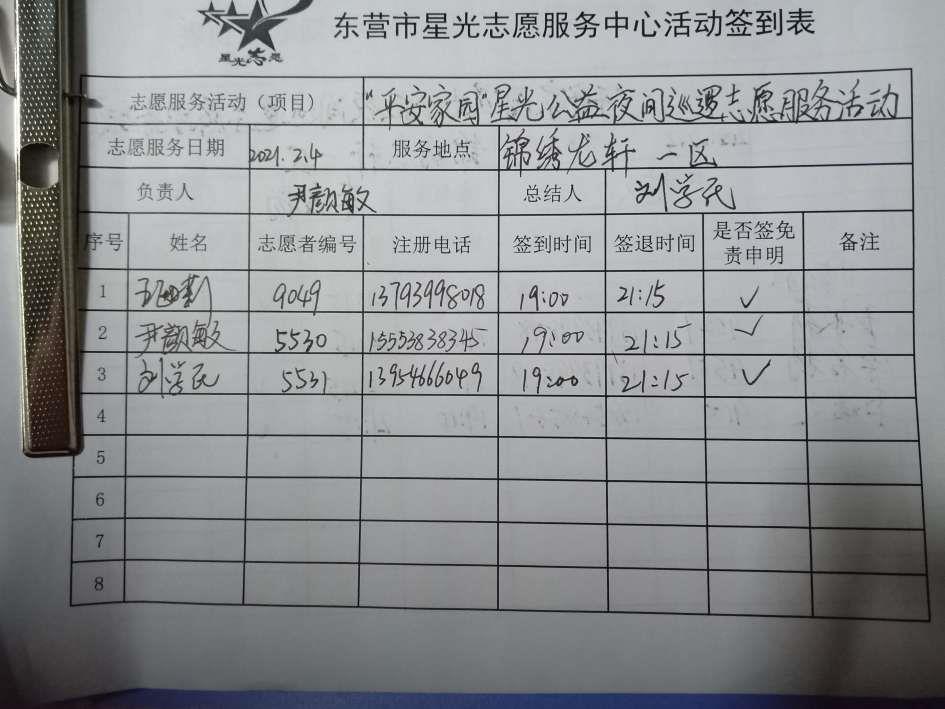 星光志愿
东营市星光志愿服务中心活动签到表
志愿服务活动（项目） "平安家园"星光公益夜间巡逻志愿服务活动
志愿服务日期 2021.2.4 服务地点 锦绣龙轩 一区
负责人 尹颜敏 总结人 刘学民
序号 姓名 志愿者编号 注册电话 签到时间 签退时间 是否签免责申明 备注
1 9049 13793998018 19:00 21:15 ✓
2 尹颜敏 5530 15553838345 19:00 21:15 ✓
3 刘学民 5531 13954666049 19:00 21:15 ✓
4
5
6
7
8